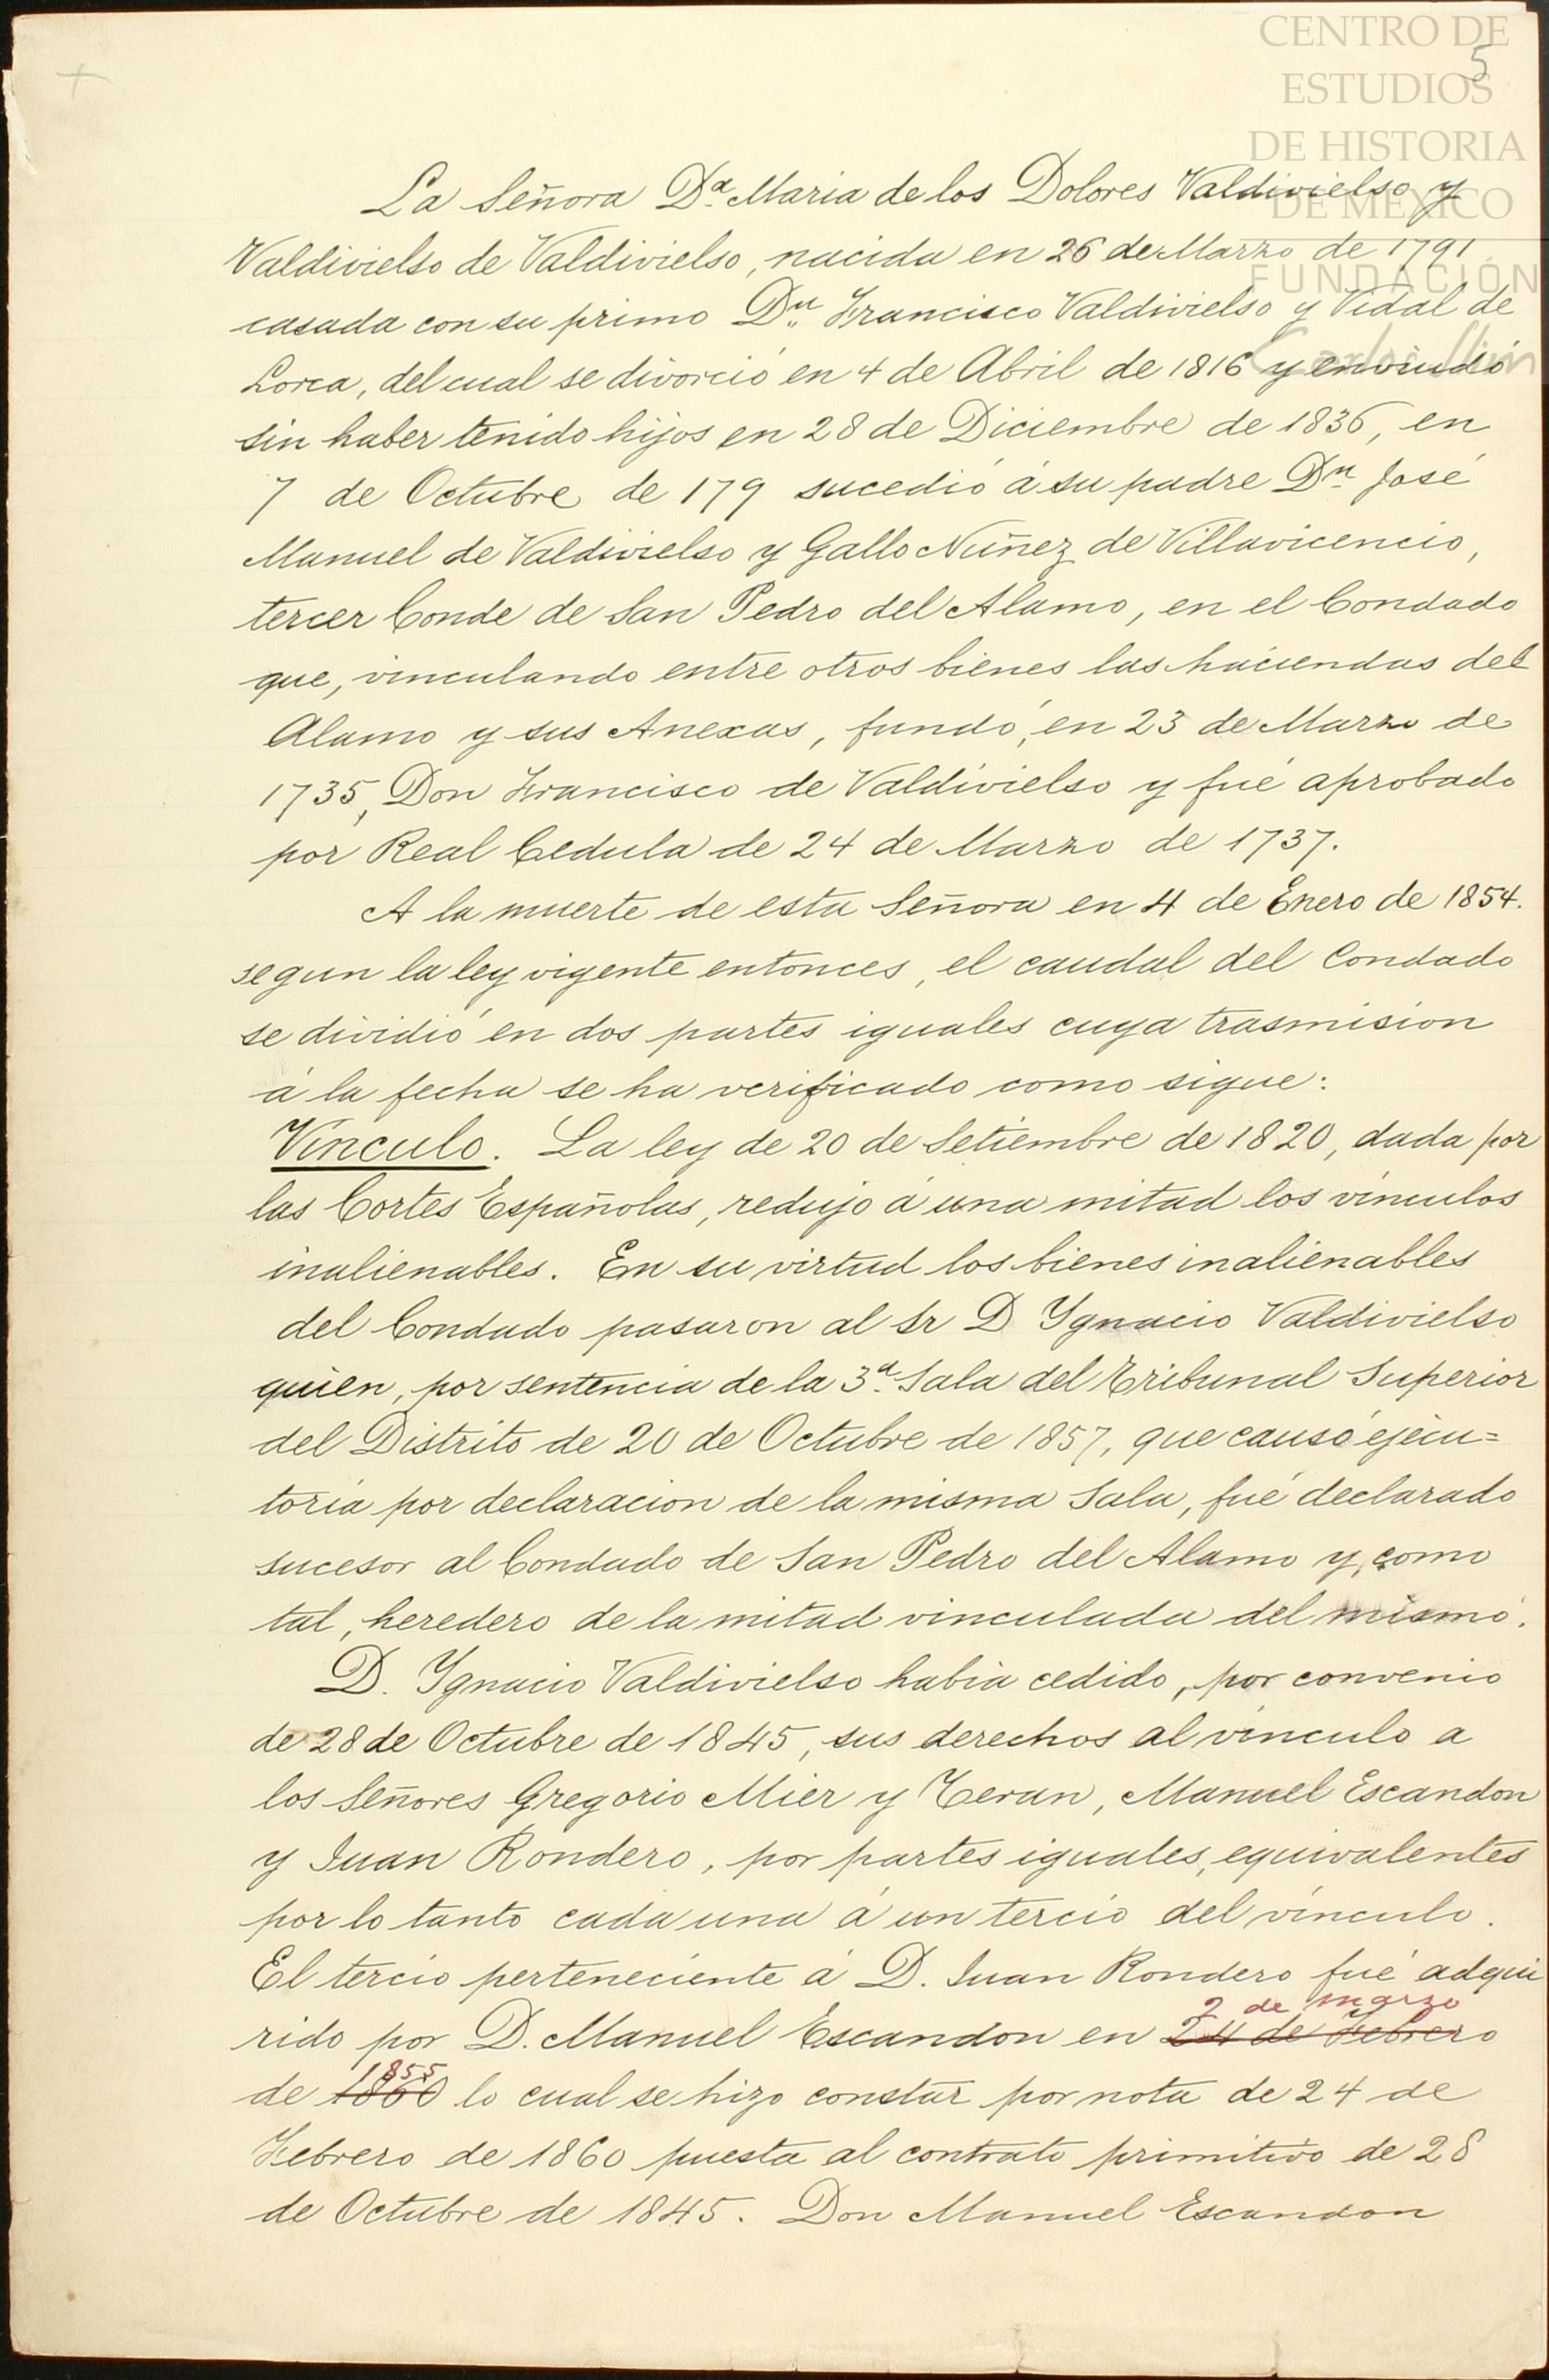 CENTRO DE
ESTUDIOS
DE HISTORIA
DE MÉXICO
FUNDACIÓN
Carlos Slim
5
La Señora Dª Maria de los Dolores Valdivielso y
Valdivielso de Valdivielso, nacida en 26 de Marzo de 1791
casada con su primo Dn Francisco Valdivielso y Vidal de
Lorca, del cual se divorció en 4 de Abril de 1816 y enviudó
sin haber tenido hijos en 28 de Diciembre de 1836, en
7 de Octubre de 179 sucedió á su padre Dn José
Manuel de Valdivielso y Gallo Nuñez de Villavicencio,
tercer Conde de San Pedro del Alamo, en el Condado
que, vinculando entre otros bienes las haciendas del
Alamo y sus Anexas, fundó, en 23 de Marzo de
1735, Don Francisco de Valdivielso y fué aprobado
por Real Cedula de 24 de Marzo de 1737.
A la muerte de esta Señora en 4 de Enero de 1854.
segun la ley vigente entonces, el caudal del Condado
se dividió en dos partes iguales cuya trasmision
á la fecha se ha verificado como sigue:
Vínculo. La ley de 20 de Setiembre de 1820, dada por
las Cortes Españolas, redujo á una mitad los vínculos
inalienables. En su virtud los bienes inalienables
del Condado pasaron al Sr D Ygnacio Valdivielso
quien, por sentencia de la 3ª Sala del Tribunal Superior
del Distrito de 20 de Octubre de 1857, que causó ejecu=
toria por declaracion de la misma Sala, fué declarado
sucesor al Condado de San Pedro del Alamo y, como
tal, heredero de la mitad vinculada del mismo.
D. Ygnacio Valdivielso habia cedido, por convenio
de 28 de Octubre de 1845, sus derechos al vínculo a
los Señores Gregorio Mier y Teran, Manuel Escandon
y Juan Rondero, por partes iguales, equivalentes
por lo tanto cada una á un tercio del vínculo.
El tercio perteneciente á D. Juan Rondero fué adqui
2 de marzo
rido por D. Manuel Escandon en 24 de Febrero
1855
de 1860 lo cual se hizo constar por nota de 24 de
Febrero de 1860 puesta al contrato primitivo de 28
de Octubre de 1845. Don Manuel Escandon